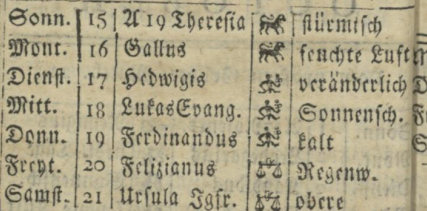 Sonn. 15 A 19 Theresia stürmisch
Mont. 16 Gallus feuchte Luft
Dienst. 17 Hedwigis veränderlich
Mitt. 18 Lukas Evang. Sonnensch.
Donn. 19 Ferdinandus kalt
Freyt. 20 Felizianus Regenw.
Samst. 21 Ursula Jgfr. obere